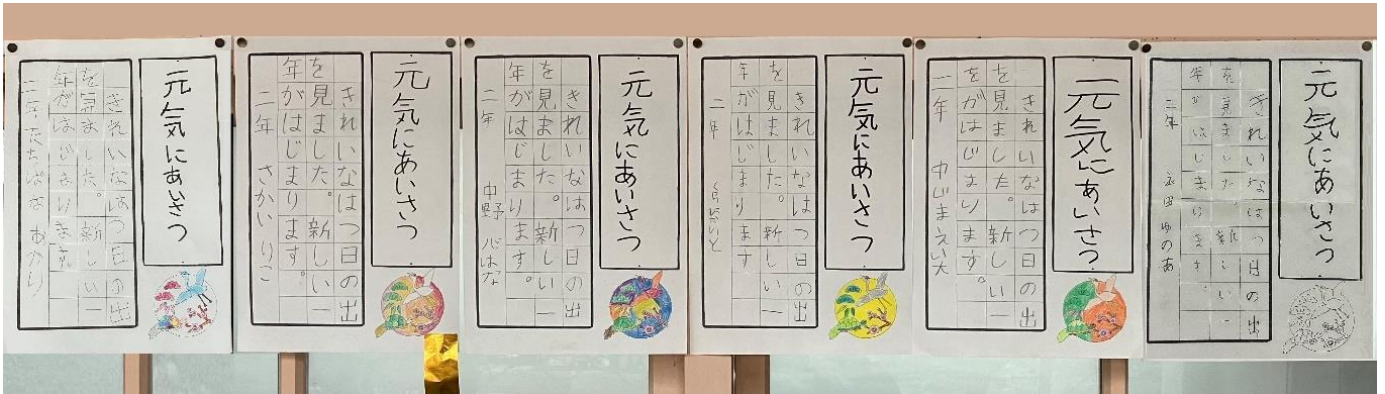 元気にあいさつ
きれいなはつ日の出
を見ました。新しい一
年がはじまります。
二年 たちばな あかり
元気にあいさつ
きれいなはつ日の出
を見ました。新しい一
年がはじまります。
二年 さかい りこ
元気にあいさつ
きれいなはつ日の出
を見ました。新しい一
年がはじまります。
二年 中野 心はな
元気にあいさつ
きれいなはつ日の出
を見ました。新しい一
年がはじまります
二年
元気にあいさつ
きれいなはつ日の出
を見ました。新しい一
年がはじまります。
二年 中じまえい大
元気にあいさつ
きれいなはつ日の出
を見ました。新しい一
年がはじまります。
二年 ゆのあ